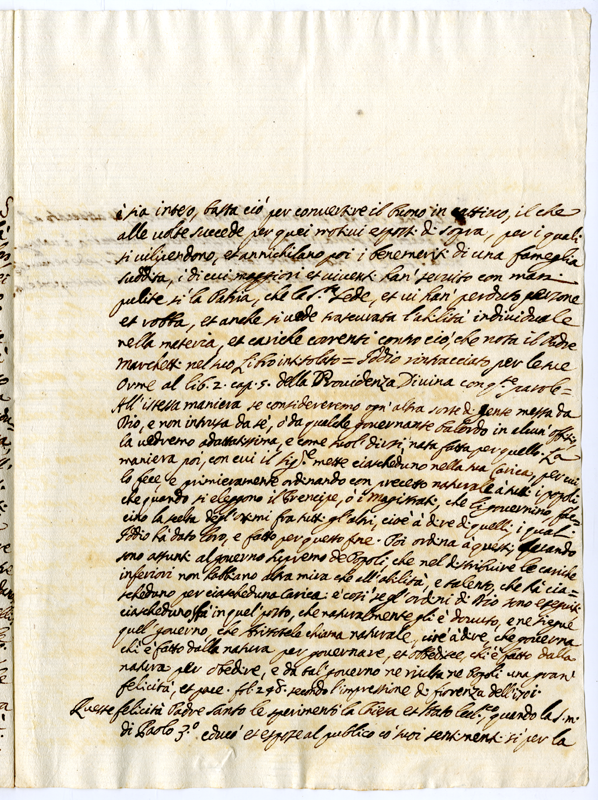 è sia inteso, basta ciò per convertire il buono in cattivo, il che
alle volte succede per quei motivi esposti di sopra, per i quali
si vilipendono, et annichilano poi i benemeriti di una famiglia
suddita, i di cui maggiori et viventi han servito con mani
pulite sì la Patria, che la S.ta Sede, et vi han perduto persone
et robba, et anche si vede trascurata l'utilità individuale
nella materia, et cariche correnti contro ciò, che nota il Padre
Marchetti nel suo Libro intitolato = Iddio rintracciato per le sue
Orme al lib. 2. cap. 5. della Providenza Divina con q.te parole =
All'istessa maniera se consideraremo ogn'altra sorte di gente messa da
Dio, e non intrusa da sé, ò da qualche governante balordo in alcun' offitio
la vedremo adattatissima, e come suol dirsi, nata fatta per quello. La
maniera poi, con cui il Sig.re mette ciascheduno nella sua Carica, per cui
lo fece, è primieramente ordinando con precetto naturale à tutti i popoli
che quando si eleggono il Prencipe, ò i Magistrati, che li governino fac=
cino la scelta degl'ottimi fra tutti gl'altri, cioè à dire di quelli, i quali
Iddio hà dato loro, e fatto per questo fine. Poi ordina à questi, quando
sono assunti al governo supremo de Popoli, che nel distribuire le cariche
inferiori non habbiano altra mira che all'abilità, e talento, che hà cia=
scheduno per ciascheduna Carica: e così se gl'ordini di Dio sono eseguiti
ciascheduno stà in quel posto, che naturalmente gli è dovuto, e ne siegue
quel governo, che Aristotele chiama naturale, cioè à dire, che governa
chi è fatto dalla natura per governare, et obedisce, chi è fatto dalla
natura per obedire, e da tal governo ne risulta ne Popoli una gran
felicità, et pace. fol. 298. secondo l'impressione di fiorenza dell'1701.
Queste felicità Padre Santo le sperimentò la Chiesa et Stato Eccl.co, quando la S. m.
di Paolo 3.o educò et espose al publico co suoi sentimenti sì per la